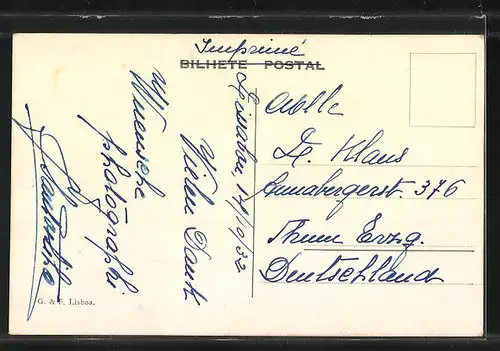 Imprimé
BILHETE POSTAL
Lissabon, 17/10/32
Vielen Dank
Wuensche
photografki
Dr. Klaus
Annabergerst. 376
Thum Erzg.
Deutschland
G. & F. Lisboa.